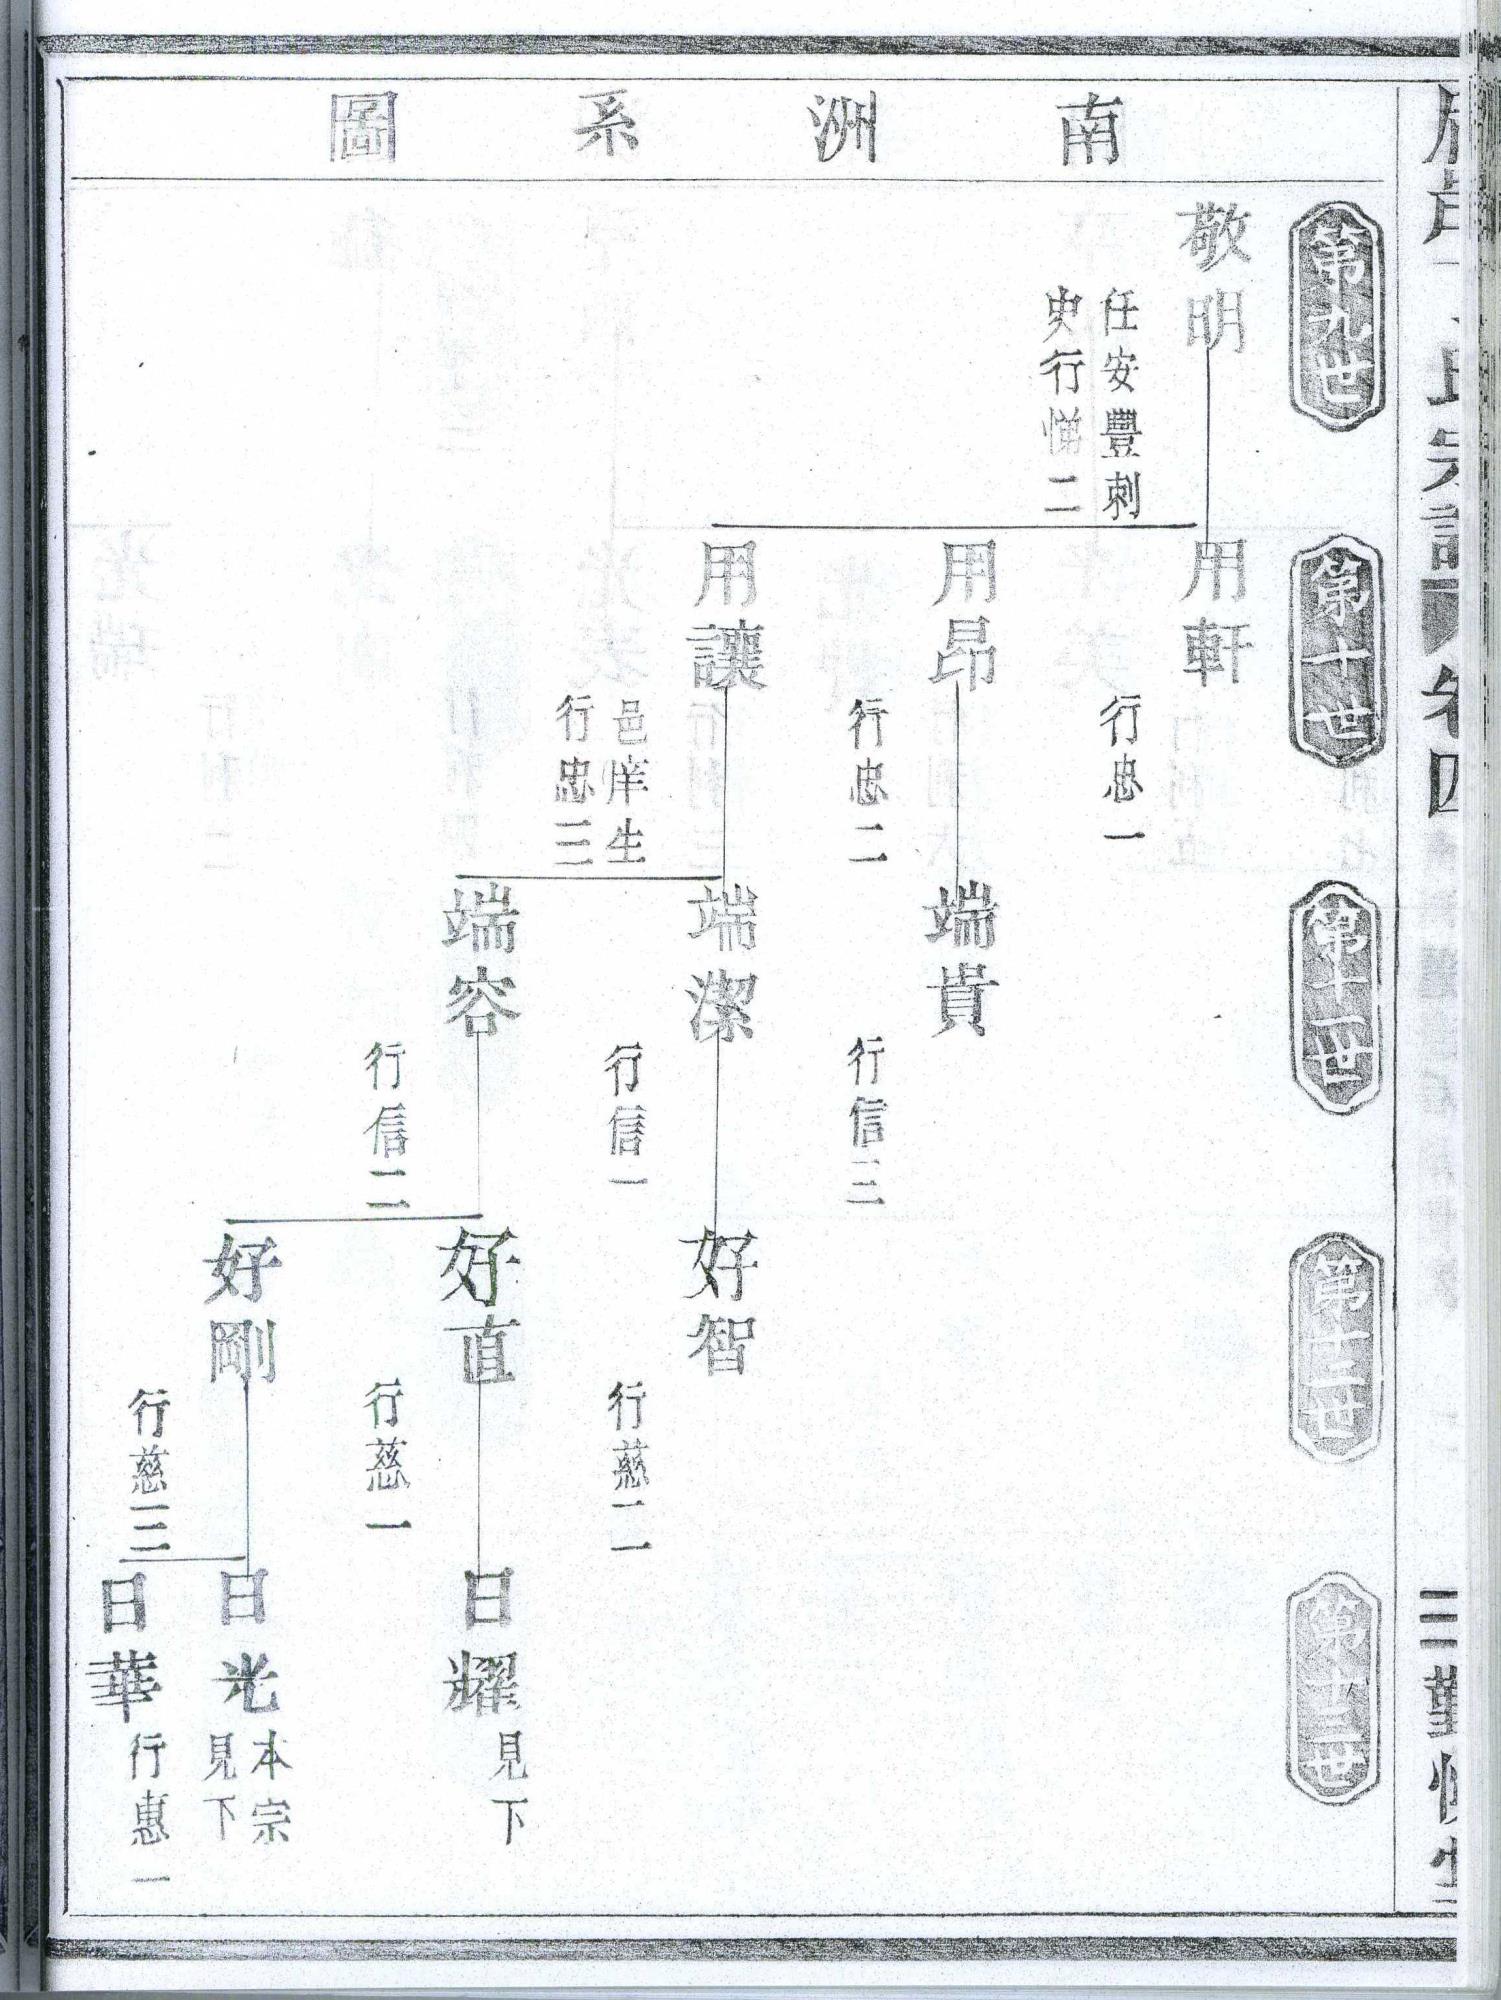 南洲系圖
第九世
敬明
任安豐刺
史行悌二
第十世
用軒
行忠一
用昂
行忠二
用讓
邑庠生
行忠三
第十一世
端貴
行信三
端潔
行信一
端容
行信二
第十二世
好智
行慈二
好直
行慈一
好剛
行慈三
第十三世
日耀
見下
日光
本宗
見下
日華
行惠一
氏宗譜
卷四
三
勤